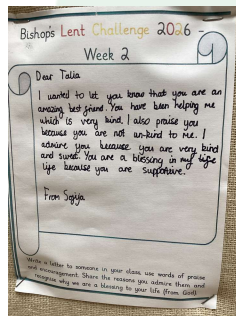 Bishop's Lent Challenge 2026 -
Week 2
Dear Talia
I wanted to let you know that you are an
amazing best friend. You have been helping me
which is very kind. I also praise you
because you are not un-kind to me. I
admire you because you are very kind
and sweet. You are a blessing in my life
life because you are supportive.
From
Write a letter to someone in your class, use words of praise
and encouragement. Share the reasons you admire them and
recognise why we are a blessing to your life (from God)